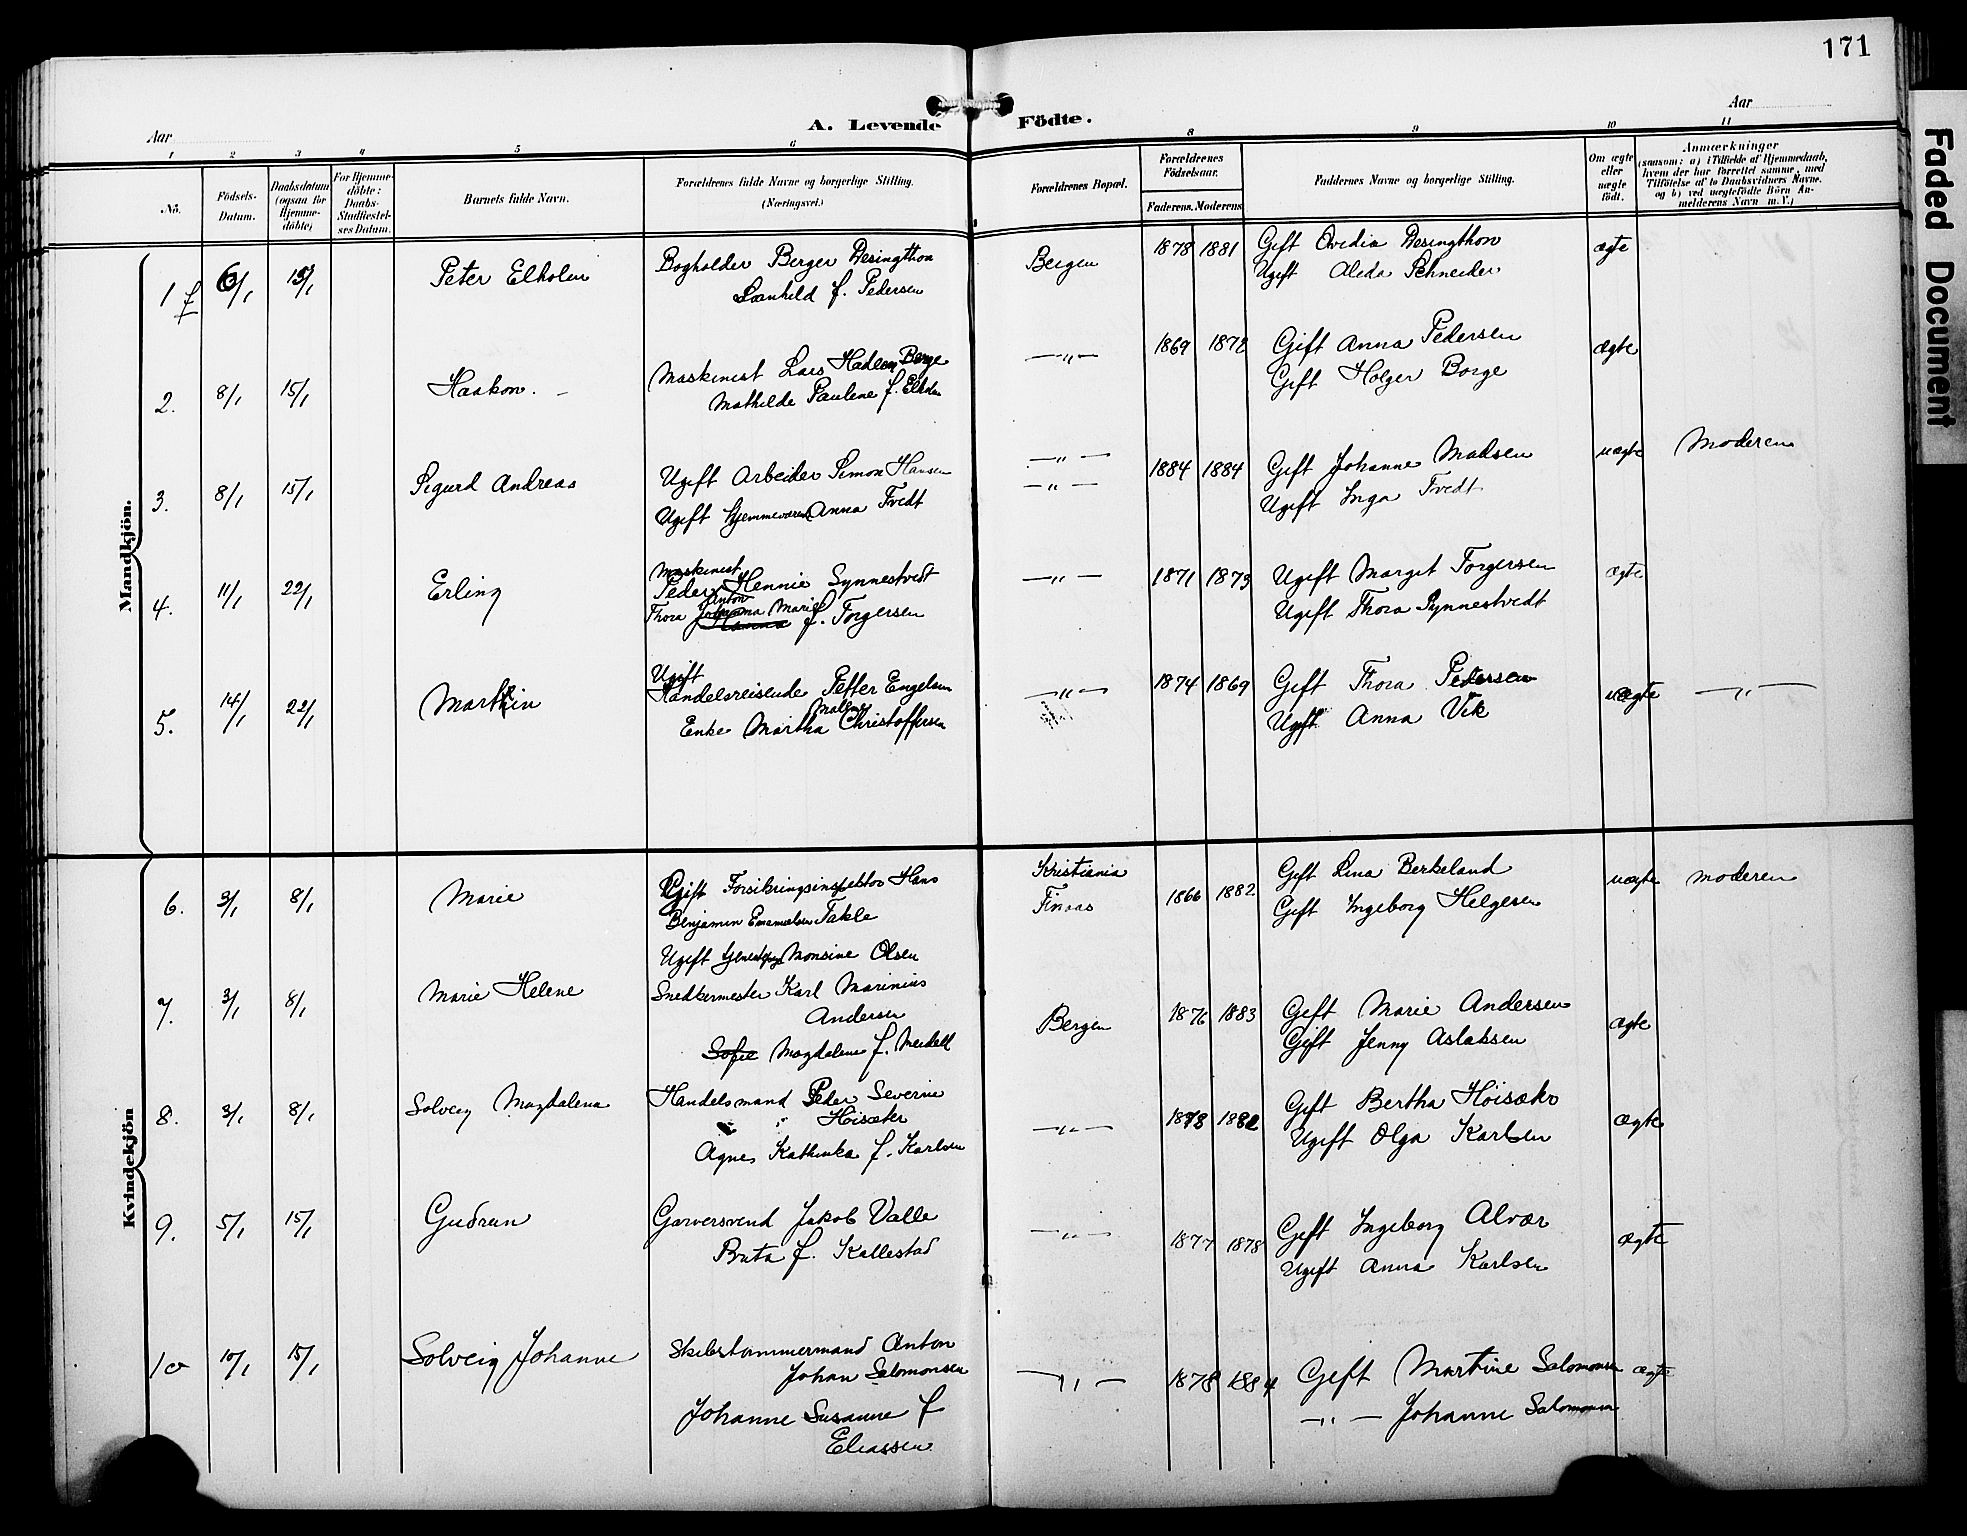 171
Faded Document
A. Levende Födte.
Aar
Aar
1 2 3 4 5 6 8 9 10 11
No.
Födsels-Datum.
Daabsdatum (ogsaa for Hjemme-döbte)
For Hjemme-döbte: Daabs-Stadfæstel-ses Datum.
Barnets fulde Navn.
Forældrenes fulde Navne og borgerlige Stilling. (Næringsvei.)
Forældrenes Bopæl.
Forældrenes Födselsaar.
Faderens. Moderens
Faddernes Navne og borgerlige Stilling.
Om ægte eller uægte födt.
Anmærkninger
(saasom: a) i Tilfælde af Hjemmedaab, hvem der har forrettet samme, med Tilföielse af to Daabsvidners Navne. og b) ved uægtefödte Börn An-melderens Navn m. V.)
Mandkjön.
1 f 6/1 15/1 Peter Elholm Bogholder Berger Desingthon Bergen 1878 1881 Gift Ovedia Desingthon ægte
f. Pedersen Ugift Aleda Schneider
2. 8/1 15/1 Haakon. Maskinist Lars Hadeon Berge —"— 1869 1872 Gift Anna Pedersen ægte
Mathilde Pauline f. Gift Holger Borge
3. 8/1 15/1 Sigurd Andreas Ugift Arbeider Simon Hansen —"— 1884 1884 Gift Johanne Madsen uægte Moderen
Ugift Hjemmeværende Anna Tvedt —"— Ugift Inga Tvedt
4. 11/1 22/1 Erling Maskinist
Peder Anton Hennie Synnestvedt —"— 1871 1873 Ugift Margit Torgersen ægte
Thora Johanna Marie f. Torgersen Ugift Thora Synnestvedt
5. 14/1 22/1 Martin Ugift
Handelsreisende Petter Engelsen —"— 1874 1869 Gift Thora Pedersen uægte —"—
Enke Martha Malene Christoffersen Ugift Anna Vik
Kvindekjön
6. 3/1 8/1 Marie Gift Forsikringsinspektør Hans Kristiania 1866 1882 Gift Lina Berkeland uægte Moderen
Benjamin Emanuelsen Takle Finaas Gift Ingeborg Helgesen
Ugift Monsine Olsen
7. 3/1 8/1 Marie Helene Snedkermester Karl Marinius Bergen 1876 1883 Gift Marie Andersen ægte
Andersen Gift Jenny Aslaksen
Sofie Magdalene f. Meidell
8. 3/1 8/1 Solveig Magdalena Handelsmand Peder Severin —"— 1878 1882 Gift Bertha Höisæter ægte
Höisæter Ugift Olga Karlsen
Agnes Kathinka f. Karlsen
9. 5/1 15/1 Gudrun Garversvend Jakob Valle —"— 1877 1878 Gift Ingeborg Alvær ægte
Brita f. Kallestad Ugift Anna Karlsen
10 10/1 15/1 Solveig Johanne Skibstømmermand Anton —"— 1878 1884 Gift Martine Salomonsen ægte
Johan Salomonsen —"— Johanne Salomonsen
Johanne Susanne f
Eliassen